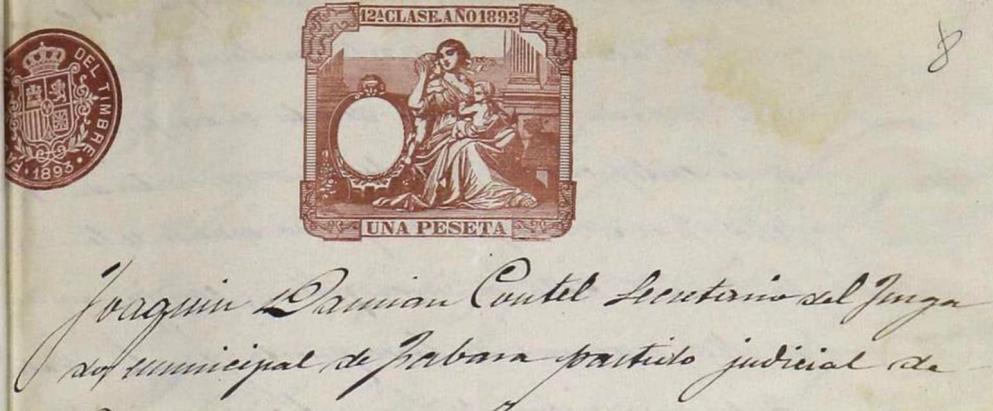 12ª CLASE. AÑO 1893
DEL TIMBRE
1893
UNA PESETA
8
Joaquin Damian Contel Secretario del Juzga
do municipal de Fabara partido judicial de